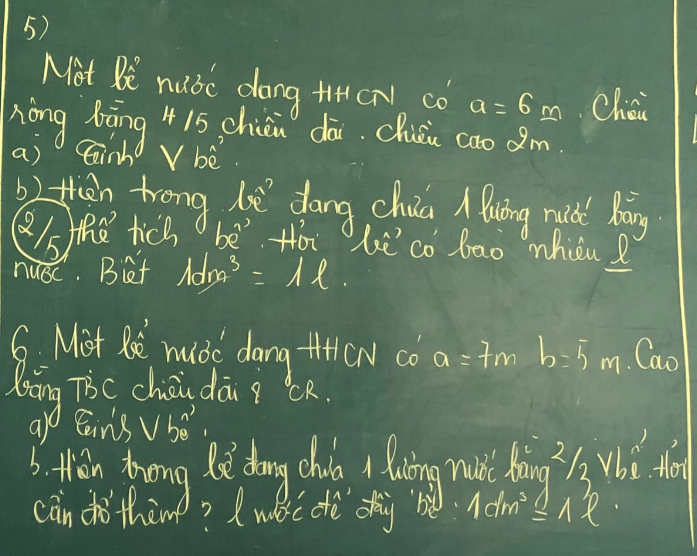 5)
Một bể nước dạng HHCN có a = 6 m. Chiều
rộng bằng 4/5 chiều dài. chiều cao 2m.
a) Tính V bể.
b) Hiện trong bể đang chứa 1 lượng nước bằng
2/5 thể tích bể. Hỏi bể có bao nhiêu l
nước. Biết 1dm³ = 1 l.
6. Một bể nước dạng HHCN có a = 7m b = 5 m. Cao
bằng TBC chiều dài & CR.
a) Tính V bể.
b. Hiện trong bể đang chứa 1 lượng nước bằng 2/3 V bể. Hỏi
cần đổ thêm ? l nước để đầy bể. 1dm³ = 1 l.